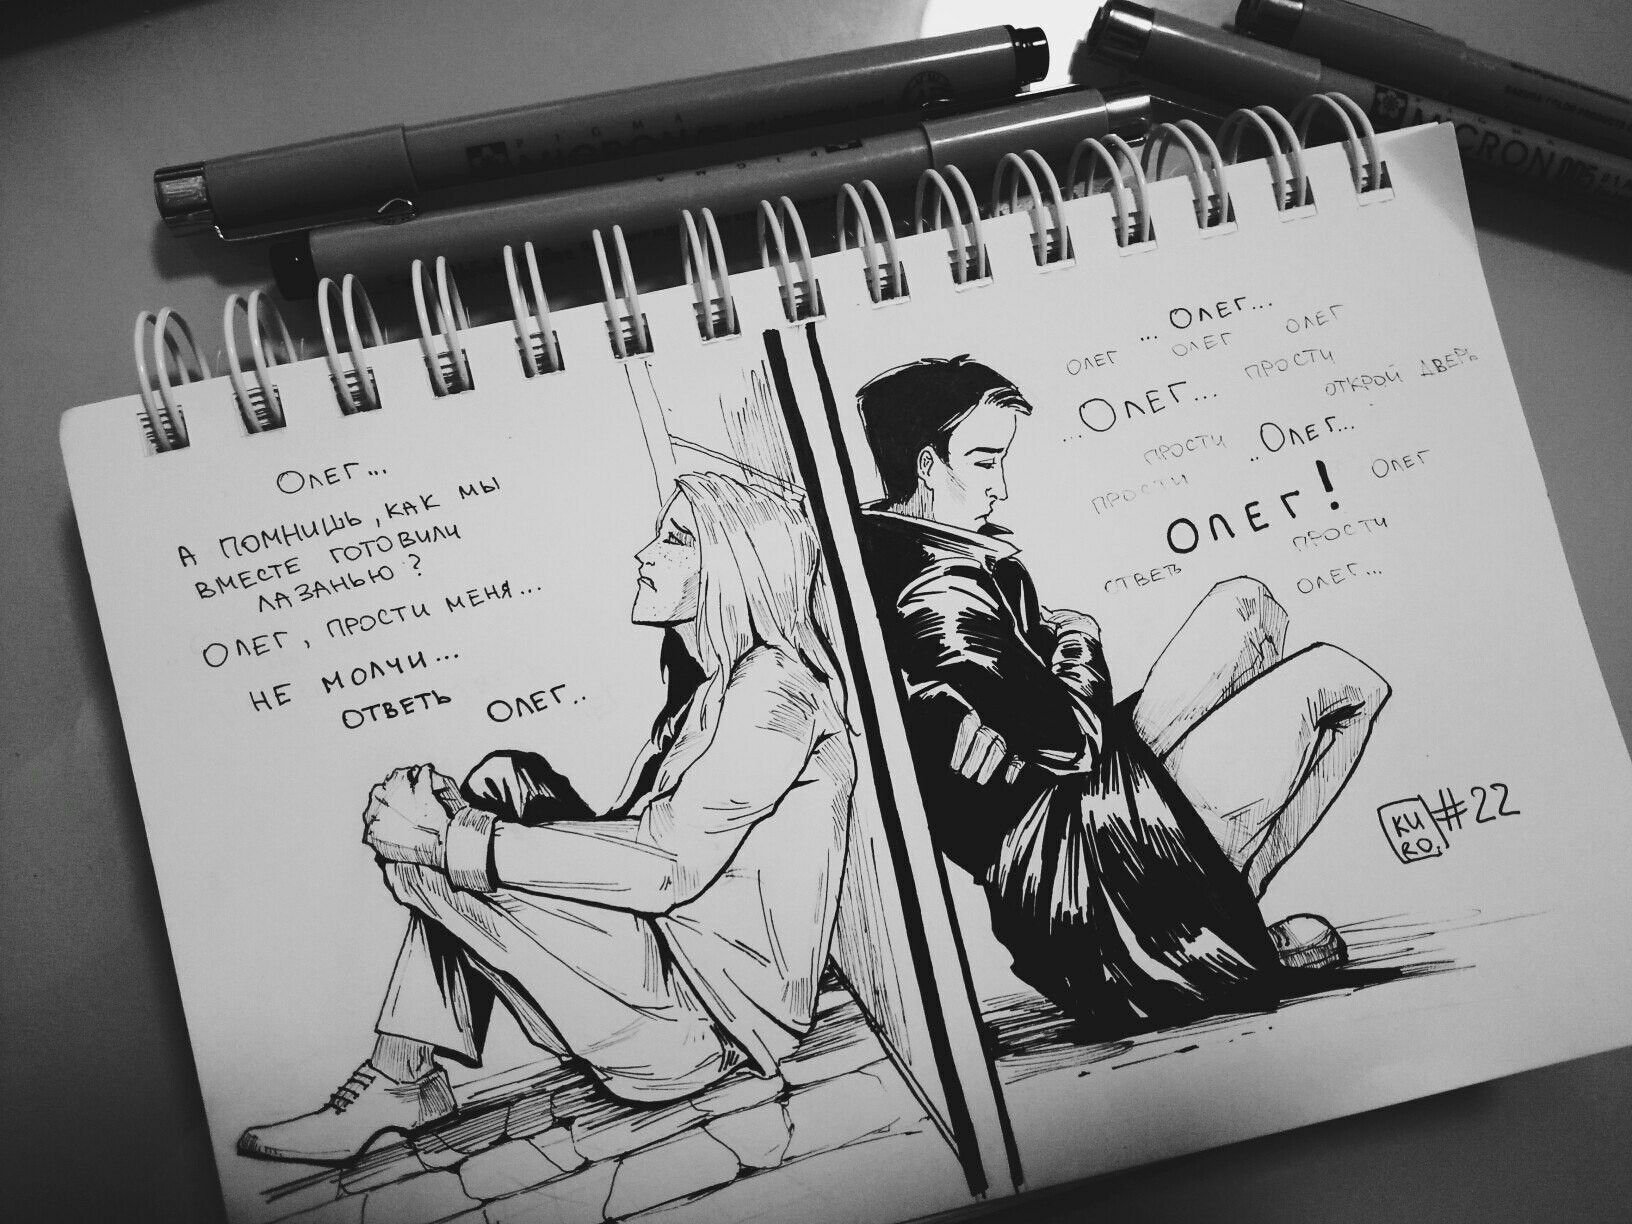 Олег...
А ПОМНИШЬ, КАК МЫ
ВМЕСТЕ ГОТОВИЛИ
ЛАЗАНЬЮ?
ОЛЕГ, ПРОСТИ МЕНЯ...
НЕ МОЛЧИ...
ОТВЕТЬ ОЛЕГ..
...Олег...
ОЛЕГ ОЛЕГ ОЛЕГ
...Олег... ПРОСТИ
ОТКРОЙ ДВЕРЬ
ПРОСТИ ..Олег...
ПРОСТИ Олег! ОЛЕГ
ОТВЕТЬ ПРОСТИ
ОЛЕГ...
KU
RO. #22
PIGMA
MICRON
PIGMA
MICRON 005